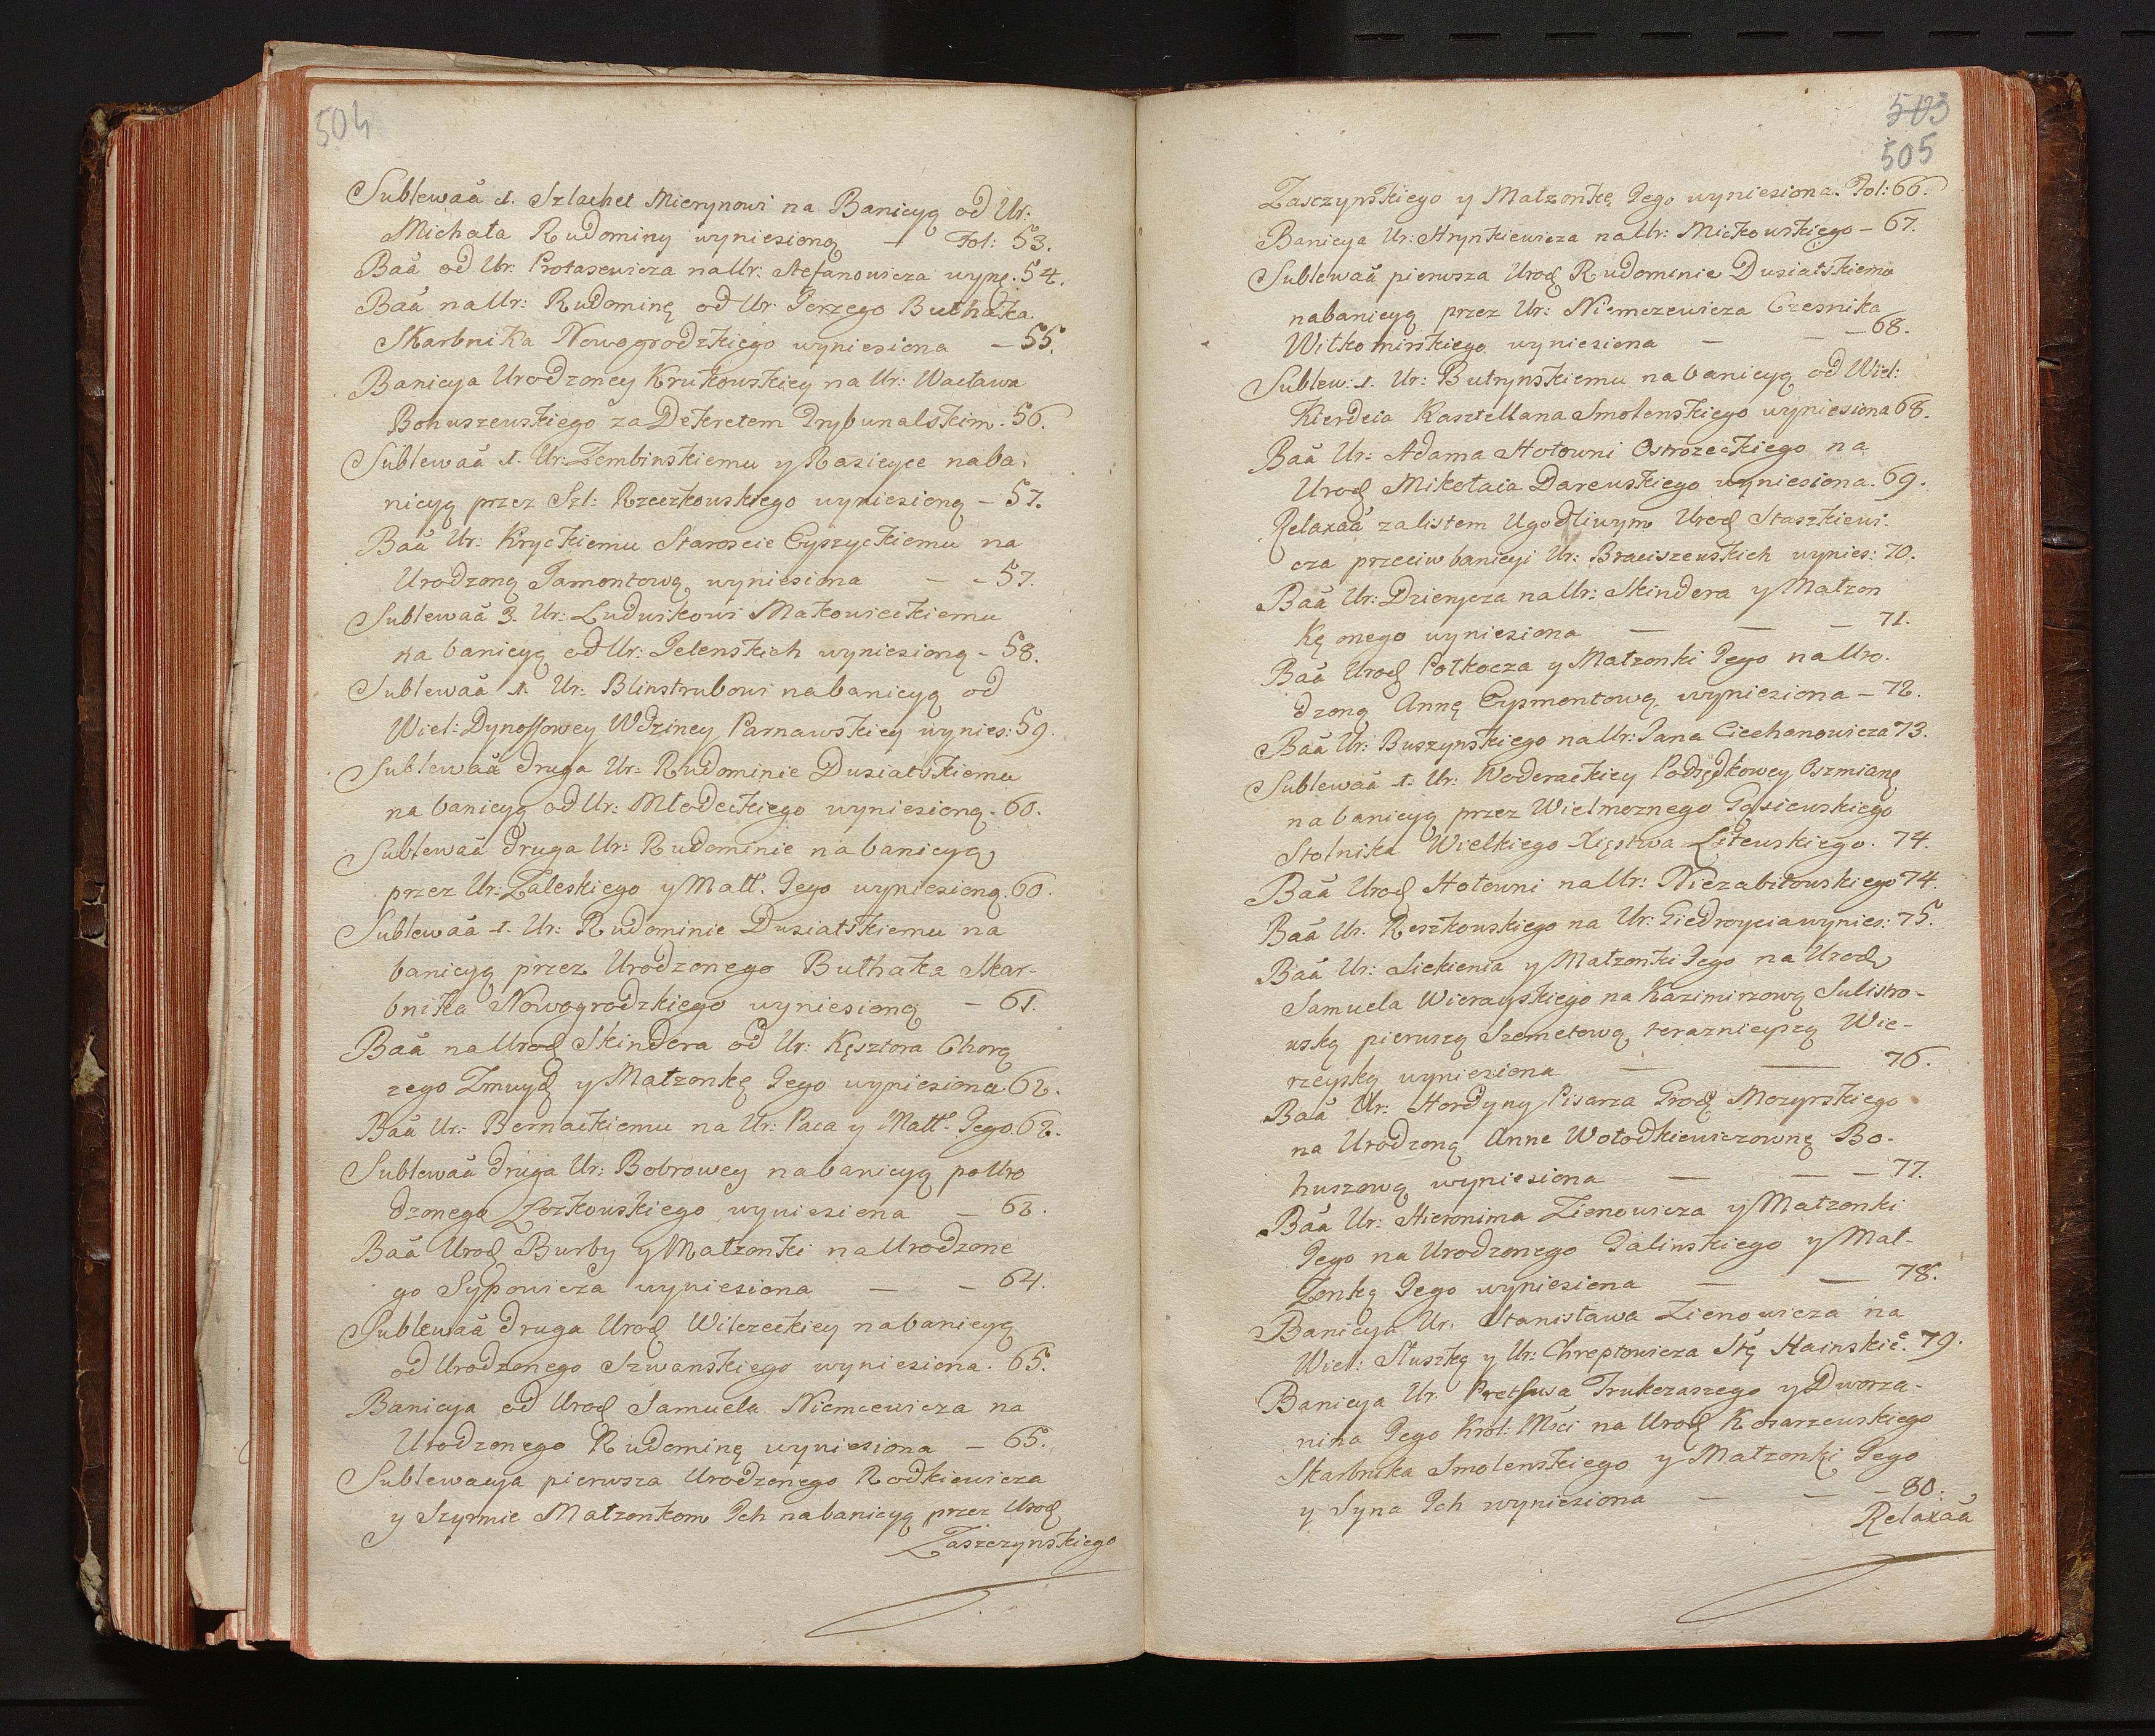 504
Sublewaã 1. Szlachet Mierynowi na Banicyą od Ur:
Michała Rudominy wyniesioną — Fol: 53.
Baã od Ur. Protasewicza na Ur. Stefanowicza wynę. 54.
Baã na Ur: Rudominę od Ur Jerzego Bułhaka
Skarbnika Nowogrodzkiego wyniesiona — 55.
Banicya Urodzoney Krukowskiey na Ur: Wacława
Bohuszewskiego za Dekretem Trybunalskim. 56.
Sublewaã 1. Ur: Zembinskiemu y Rasicyce na ba-
nicyą przez Szl: Rzeczkowskiego wyniesioną — 57.
Baã Ur: Kryckiemu Staroscie Eyszyckiemu na
Urodzoną Jamontową wyniesiona — - 57.
Sublewaã 3. Ur: Ludwikowi Makowieckiemu
na banicyą od Ur: Jelenskich wyniesioną - 58.
Sublewaã 1. Ur: Blinstrubowi na banicyą od
Wiel: Dynoffowey Wdziney Parnawskiey wynies: 59.
Sublewaã druga Ur: Rudominie Dusiatskiemu
na banicyą od Ur: Młodeckiego wyniesioną. 60.
Sublewaã druga Ur: Rudominie na banicyą
przez Ur: Zaleskiego y Małż. Jego wyniesioną. 60.
Sublewaã 1. Ur: Rudominie Dusiatskiemu na
banicyą przez Urodzonego Bułhaka Skar-
bnika Nowogrodzkiego wyniesioną — 61.
Baã na Urod Skindera od Ur: Kęsztora Chorą
zego Zmuyd y Małzonkę Jego wyniesiona. 62.
Baã Ur: Bernackiemu na Ur: Paca y Małż. Jego. 62.
Sublewaã druga Ur: Bobrowey na banicyą po Uro
dzonego Zorkowskiego wyniesiena — 62.
Baã Urod Burby y Małzonki na Urodzone
go Sypowicza wyniesiona — — 64.
Sublewaã druga Urod Wilczeckiey na banicyą
od Urodzonego Szwanskiego wyniesiona. 65.
Banicya od Urod Samuela Niemcewicza na
Urodzonego Rudominę wyniesiona — 65.
Sublewacya pierwsza Urodzonego Rodkiewicza
y Szyrmie Małzonkom Ich na banicyą przez Urod
Zaszczynskiego
503
505
Zasczynskiego y Małzonkę Jego wyniesiona. Fol: 66.
Banicya Ur: Hrynkiewicza na Ur: Mickowskiego — 67.
Sublewaã pierwsza Urod Rudominie Dusiatskiemu
na banicyą przez Ur: Niemczewicza Czesnika
Wiłkomirskiego wyniesiona — — — 68.
Sublew: 1. Ur: Butrynskiemu na banicyą od Wiel:
Kierdeia Kasztellana Smolenskiego wyniesiona 68.
Baã Ur: Adama Hołowni Ostrozeckiego na
Urod Mikołaia Darewskiego wyniesiona. 69.
Relaxaã za listem Ugodliwym Urod Staszkiewi-
cza przeciw banicyi Ur: Braciszewskich wynies: 70.
Baã Ur: Dzienycza na Ur: Skindera y Małzon
kę onego wyniesiona — — — 71.
Baã Urod Połkocza y Małzonki Jego na Uro-
dzoną Annę Eysmontową wyniesiona — 72.
Baã Ur: Buszynskiego na Ur: Jana Ciechanowicza 73.
Sublewaã 1. Ur: Woderackiey Podsędkowey Oszmianę
na banicyą przez Wielmoznego Gąsiewskiego
Stolnika Wielkiego Xięstwa Litewskiego. 74.
Baã Urod Hołowni na Ur: Niezabitowskiego 74.
Baã Ur. Reszkowskiego na Ur: Giedroycia wynies: 75.
Baã Ur: Siekienia y Małzonki Jego na Urod
Samuela Wierayskiego na Kazimirzową Sulistro-
wską pierwszą Szemetową, teraznieyszą Wie-
rzeyską wyniesiona — — 76.
Baã Ur: Hordyny Pisarza Grod Mozyrskiego
na Urodzoną Anne Wołodkiewiczownę Bo-
huszową wyniesiona — — — 77.
Baã Ur: Hieronima Zienowicza y Małzonki
Jego na Urodzonego Galinskiego y Mał-
Zonkę Jego wyniesiena — — 78.
Banicya Ur. Stanisława Zienowicza na
Wiel: Słuszkę y Ur: Chreptowicza Stę Hainskie. 79.
Banicya Ur. Pretfusa Trukczaszego y Dworza-
nina Jego Krol: Mści na Urod Kosarzewskiego
Skarbnika Smolenskiego y Małzonki Jego
y Syna Ich wyniesiona — — — 80.
Relaxaã